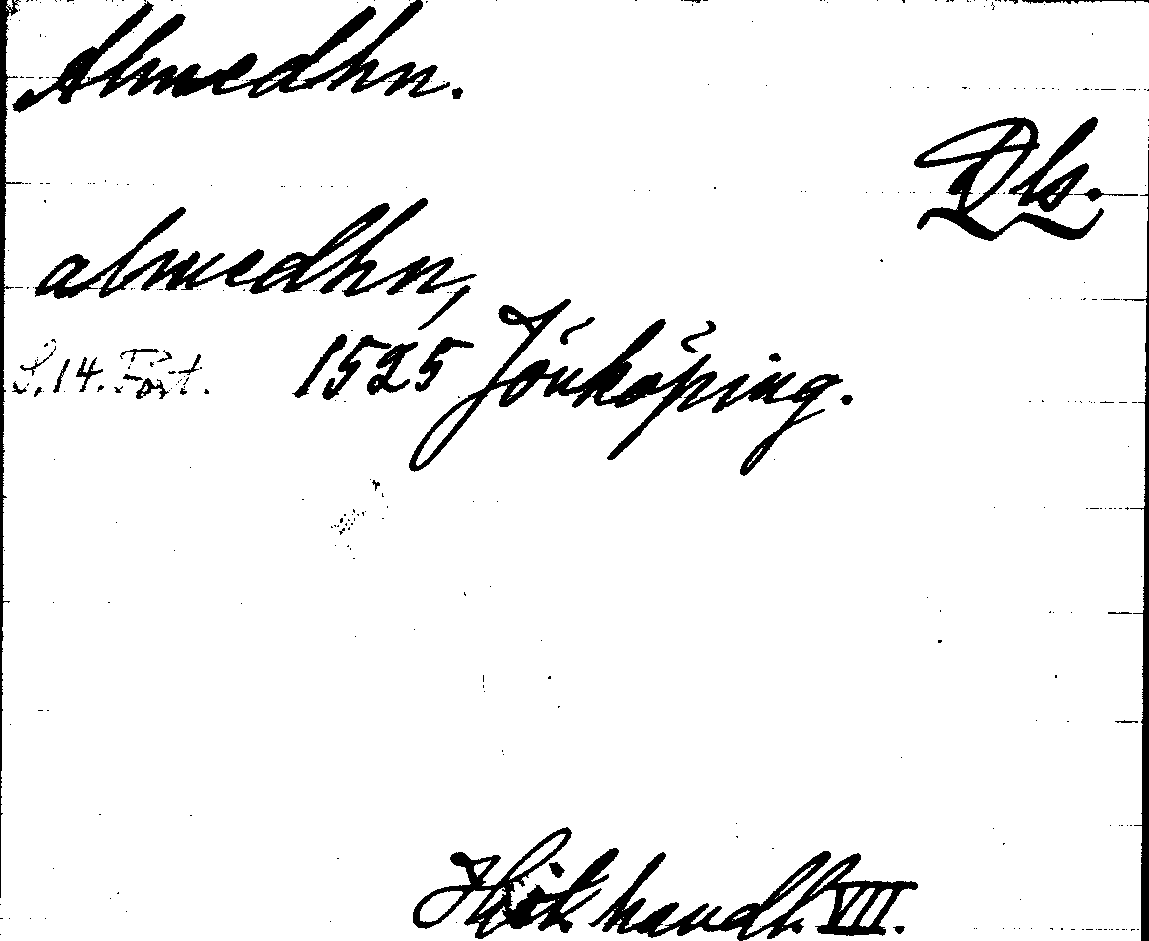 Almedhn.
Dls.
almedhn,
S. 14. Fört. 1525 Jönköping.
Hist. handl. VIII.